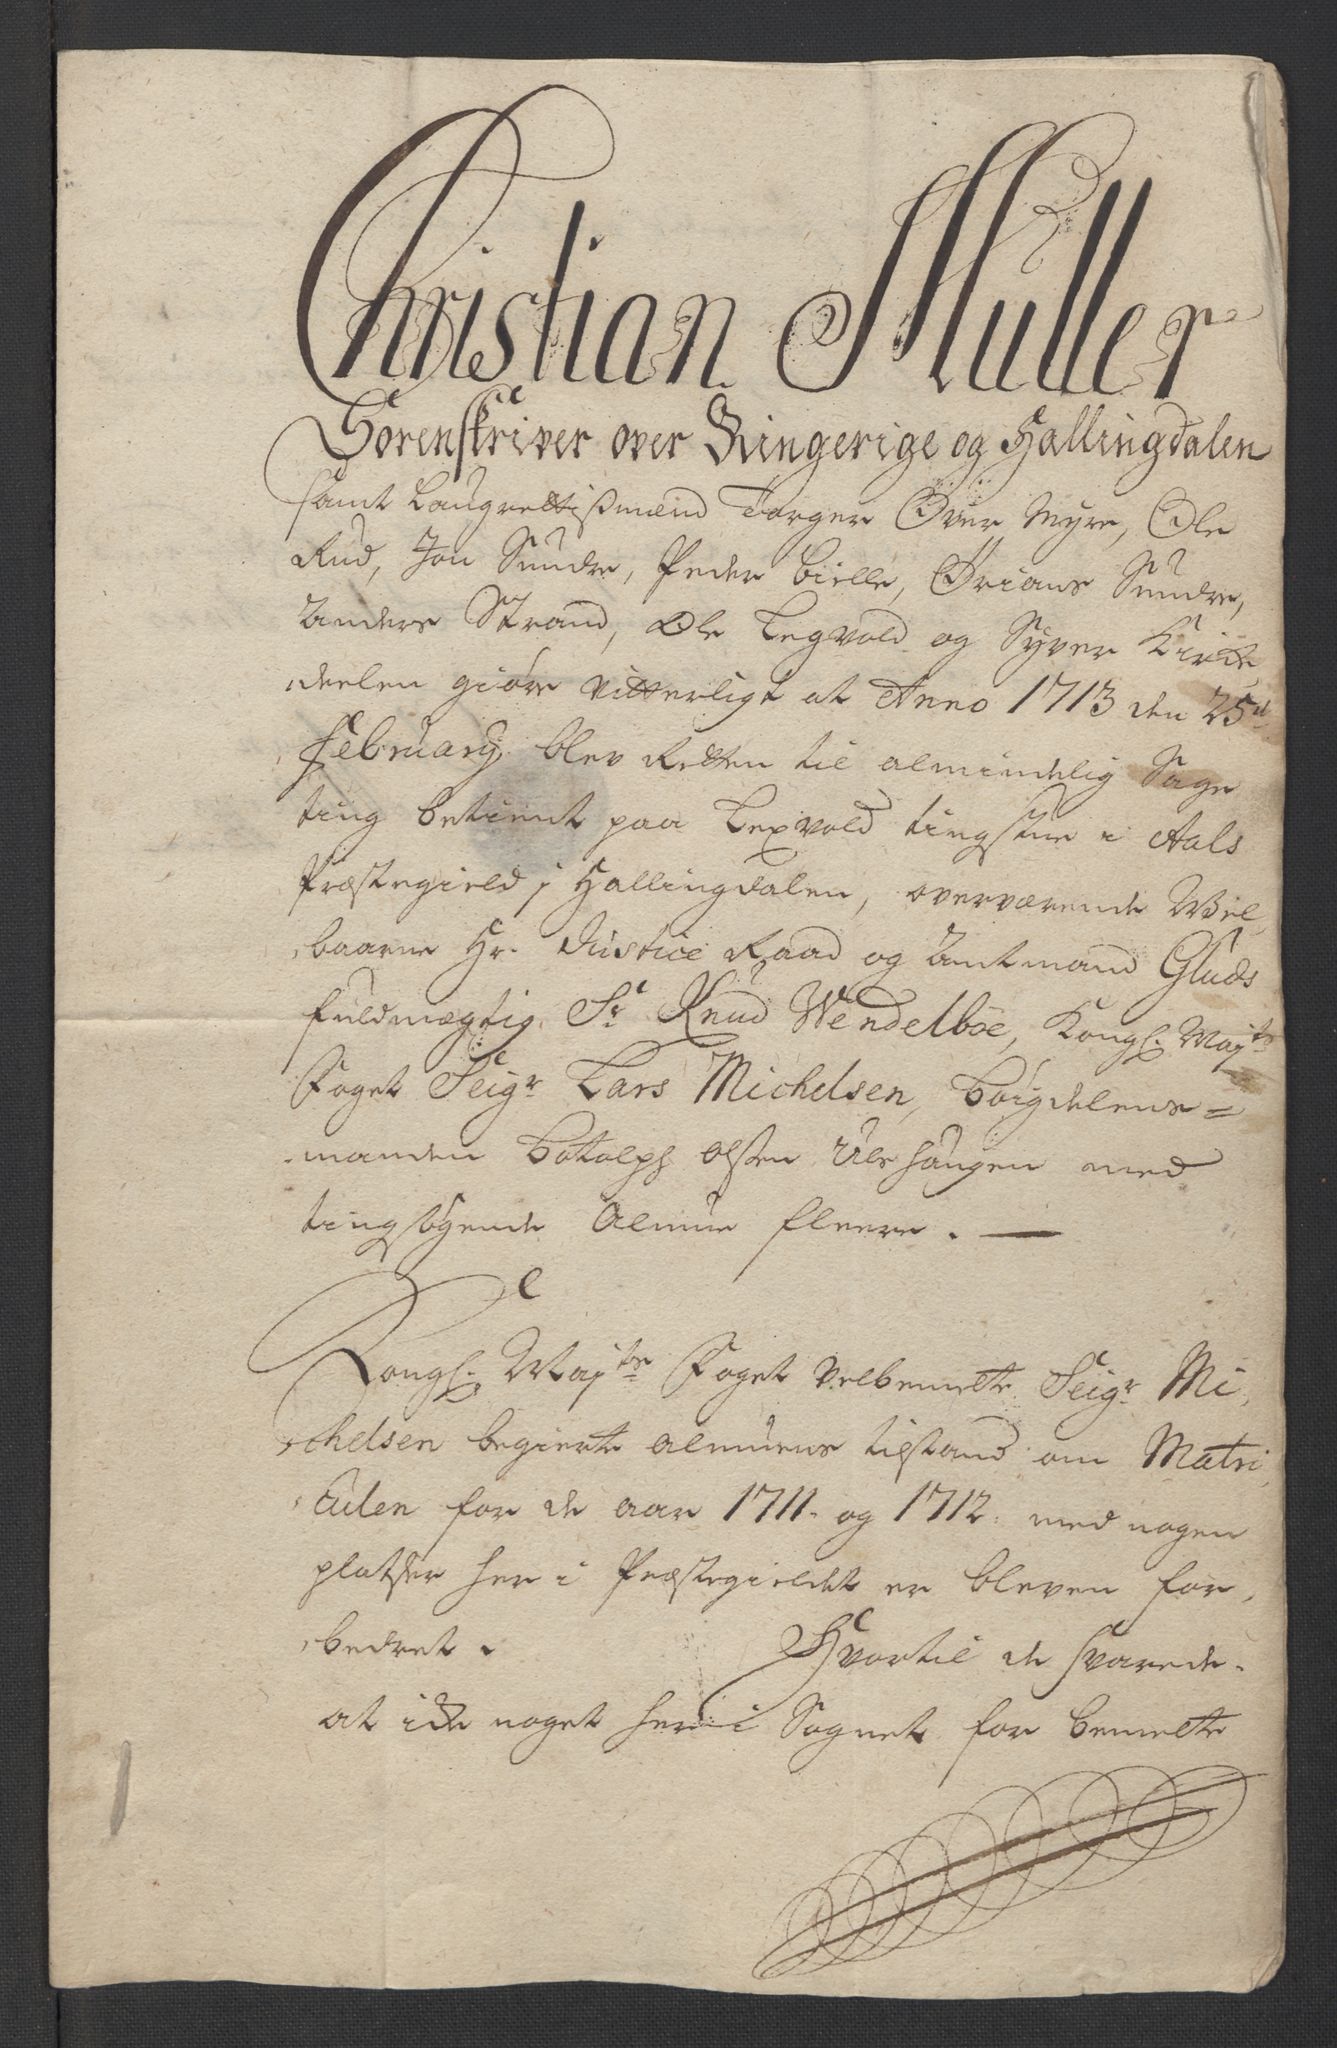 Christian Muller
Sorenskriver over Ringerige og Hallingdalen
samt Laugrettismænd Torger Øver Myre, Ole
Rud, Jon Sundre, Peder Bielle, Ørians Sundre,
Anders Strand, Ole Legvold og Syver Kirke
deelen giøre vitterligt at Anno 1713 den 25d
February blev Retten til almindelig Sage
ting betient paa Lexvold tingstue i Aals
Præstegield i Hallingdalen, overværende Wel
baarne Hr. Justice Raad og Amtmand Gluds
fuldmægtig Sr Knud Wendelboe, Kongl. Majts
Foget Seigr Lars Michelsen, Bøigdelens=
manden Botolph Olsen Ulshaugen med
tingsøgende Almue fleere.
Kongl. Majts Foget velbemelte Seigr Mi
chelsen begierte almuens tilstand om Matri
culen for de aar 1711. og 1712. med nogen
platser her i Præstegieldet er bleven for
bedret. Hvortil de svarede
at icke noget her i Sognet for bemelte